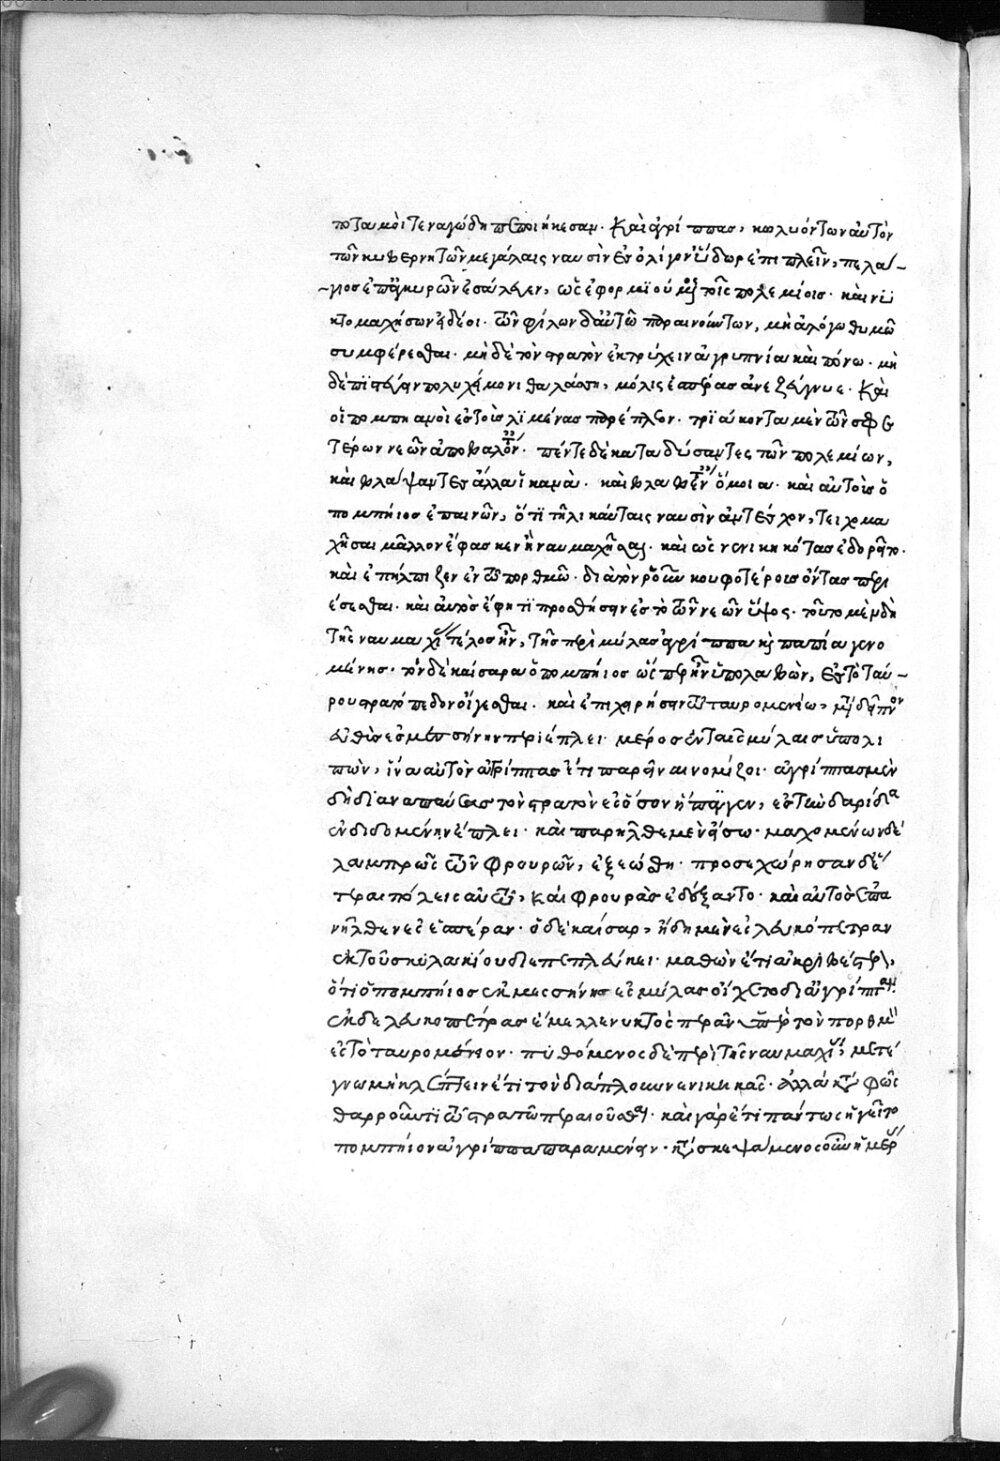 ποταμοὶ τεναγώδη πεποιήκεσαν. Καὶ ἀγρίππας, κωλυόντων αὐτὸν
τῶν κυβερνητῶν μεγάλαις ναυσὶν ἐς ὀλίγον ὕδωρ ἐπιπλεῖν, πελά-
γιος ἐπ' ἀγκυρῶν ἐσάλευεν, ὡς ἐφορμιούμενος τοῖς πολεμίοις· καὶ νυ
κτομαχήσων εἰ δέοι· τῶν φίλων δ' αὐτῶ παραινούντων, μὴ ἀλόγω θυμῶ
συμφέρεσθαι· μηδὲ τὸν στρατὸν ἐκτρύχειν ἀγρυπνία καὶ πόνω· μη
δὲ πιστεύειν πολυχείμονι θαλάσση, μόλις ἑσπέρας ἀνεζεύγνυε· Καὶ
οἱ πομπηιανοὶ ἐς τοὺς λιμένας παρέπλεον· τριάκοντα μὲν τῶν σφε
τέρων νεῶν ἀποβαλόντες· πέντε δὲ καταδύσαντες τῶν πολεμίων,
καὶ βλάψαντες ἄλλα ἱκανὰ· καὶ βλαβέντες ὅμοια· καὶ αὐτοὺς ὁ
πομπήιος ἐπαινῶν, ὅτι τηλικαύταις ναυσὶν ἀντέσχον, τειχομα
χῆσαι μᾶλλον ἔφασκεν ἢ ναυμαχῆσαι· καὶ ὡς νενικηκότας ἐδορεῖτο·
καὶ ἐπήλπιζεν ἐν τῶ πορθμῶ· διὰ τὸν ῥοῦν κουφοτέροις ὄντας περι
έσεσθαι· καὶ αὐτὸς ἔφη τι προσθήσειν ἐς τὸ τῶν νεῶν ὕψος· τοῦτο μὲν δὴ
τῆς ναυμαχίας τέλος ἦν, τῆς περὶ μύλας ἀγρίππα καὶ παπία γενο
μένης· τὸν δὲ καίσαρα ὁ πομπήιος ὥσπερ ἦν ὑπολαβὼν, ἐς τὸ ταύ-
ρου στρατόπεδον οἴχεσθαι· καὶ ἐπιχειρήσειν τῶ ταυρομενίω, μετὰ δεῖπνον
εὐθὺς ἐς μεσσήνην περιέπλει· μέρος ἐν ταῖς μύλαις ὑπολι
πὼν, ἵνα αὐτὸν ἀγρίππας ἔτι παρεῖναι νομίζοι· ἀγρίππας μὲν
δὴ διαναπαύσας τὸν στρατὸν ἐς ὅσον ἤπειγεν, ἐς τυνδαρίδα
ἐνδιδομένην ἔπλει· καὶ παρῆλθε μὲν εἴσω· μαχομένων δὲ
λαμπρῶς τῶν φρουρῶν, ἐξεώθη· προσεχώρησαν δ' ἕ
τεραι πόλεις αὐτῶ, καὶ φρουρὰς ἐδέξαντο· καὶ αὐτὸς ἐπα
νῆλθεν ἐς ἑσπέραν· ὁ δὲ καίσαρ, ἤδη μὲν ἐς λευκόπετραν
ἐκ τοῦ σκυλακίου διεπεπλεύκει· μαθὼν ἔτι ἀκριβέστερον,
ὅτι ὁ πομπήιος ἐκ μεσσήνης ἐς μύλας οἴχοιτο δι' ἀγρίππαν·
ἐκ δὲ λευκοπέτρας ἔμελλεν νυκτὸς περᾶν ὑπὲρ τὸν πορθμὸν
ἐς τὸ ταυρομένιον· πυθόμενος δὲ περὶ τῆς ναυμαχίας, μετέ
γνω μὴ κλέπτειν ἔτι τὸν διάπλουν νενικηκὼς· ἀλλὰ μετὰ φῶς
θαρροῦντι τῶ στρατῶ περαιοῦσθαι· καὶ γὰρ ἔτι πάντως ἡγεῖτο
πομπήιον ἀγρίππα παραμένειν· κατασκεψάμενος οὖν ἡμέρας